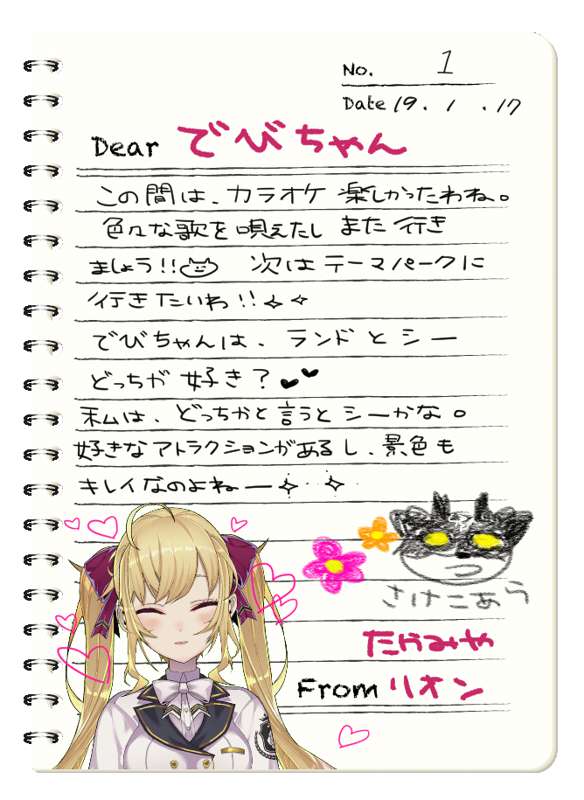 No. 1
Date 19. 1 .17
Dear でびちゃん
この間は、カラオケ 楽しかったわね。
色々な歌を唄えたし また 行き
ましょう!! 次は テーマパークに
行きたいわ!!
でびちゃんは、ランド と シー
どっちが 好き?
私は、どっちかと言うと シーかな。
好きなアトラクションがあるし、景色も
キレイなのよねー
さけこあう
たかみや
From リオン